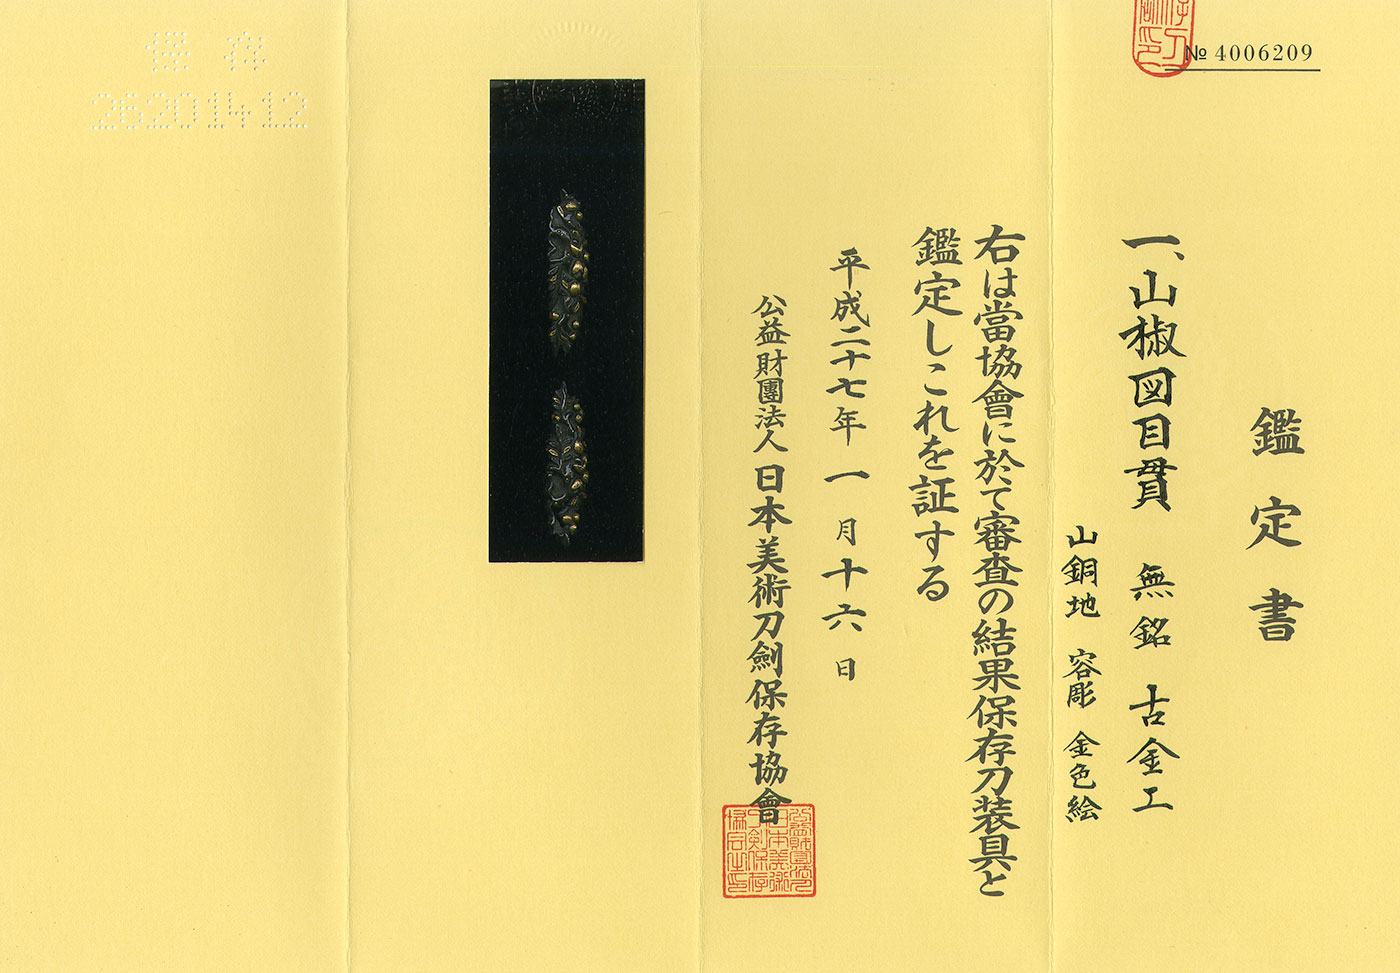 № 4006209
鑑定書
一、山椒図目貫 無銘 古金工
山銅地 容彫 金色絵
右は當協會に於て審査の結果保存刀装具と
鑑定しこれを証する
平成二十七年一月十六日
公益財團法人日本美術刀劍保存協會
保存
26201412